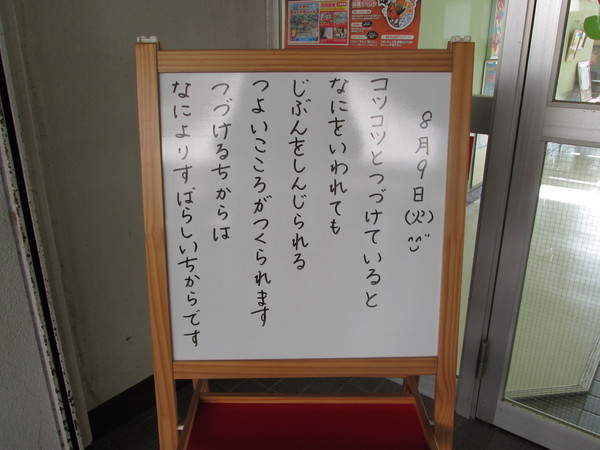 8月9日(火)
コツコツとつづけていると
なにをいわれても
じぶんをしんじられる
つよいこころがつくられます
つづけるちからは
なによりすばらしいちからです